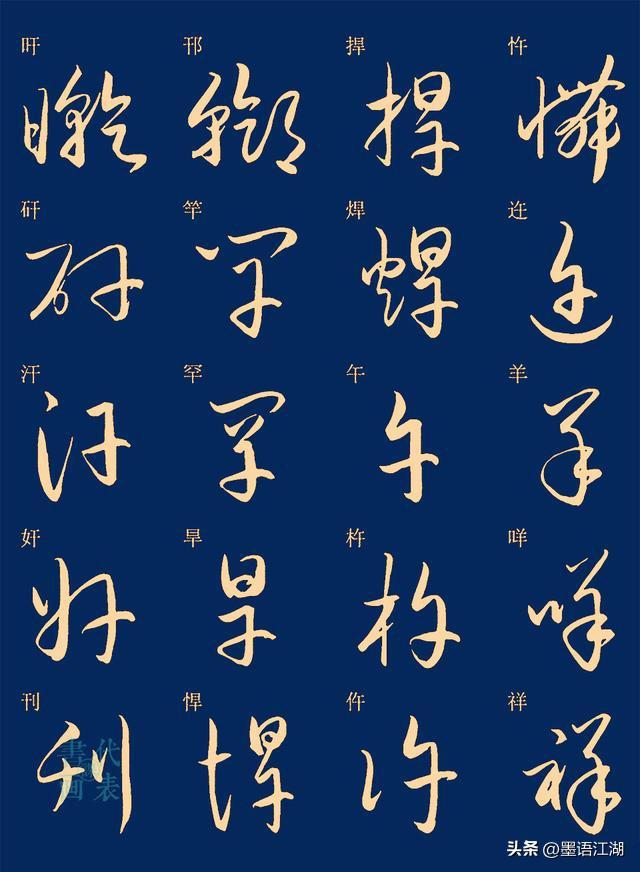 旰 邗 捍 忤
矸 竿 焊 迕
汗 罕 午 羊
奸 旱 杵 咩
刊 悍 仵 祥
書画
代表
头条 @墨语江湖